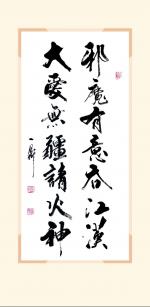 邪魔有意吞江漢
大愛無疆諸火神
一郷